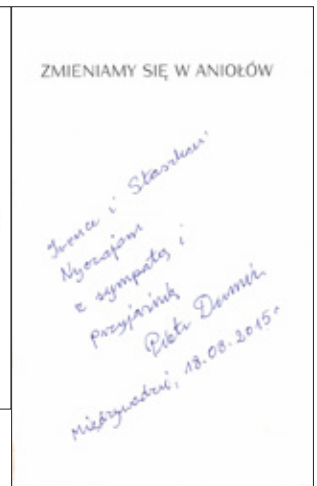 ZMIENIAMY SIĘ W ANIOŁÓW
Irence i Staszkowi
Nyczajom
z sympatią i
przyjaźnią
Piotr
Międzywodzie, 18.08.2015r